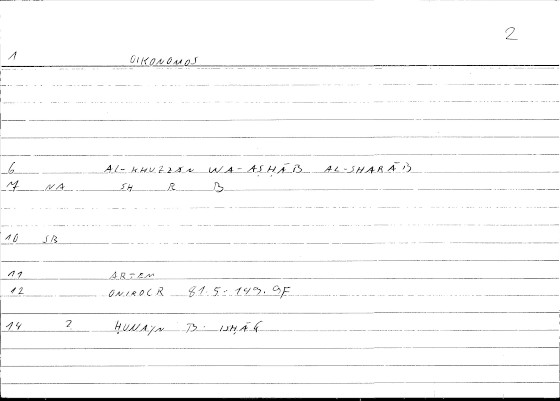 2
1 OIKONOMOS
6 AL-KHUZZĀN WA-AṢḤĀB AL-SHARĀB
7 NA SH R B
10 SB
11 ARTEM
12 ONIROCR 81.5: 149.9F
14 2 ḤUNAYN B. ISḤĀḲ